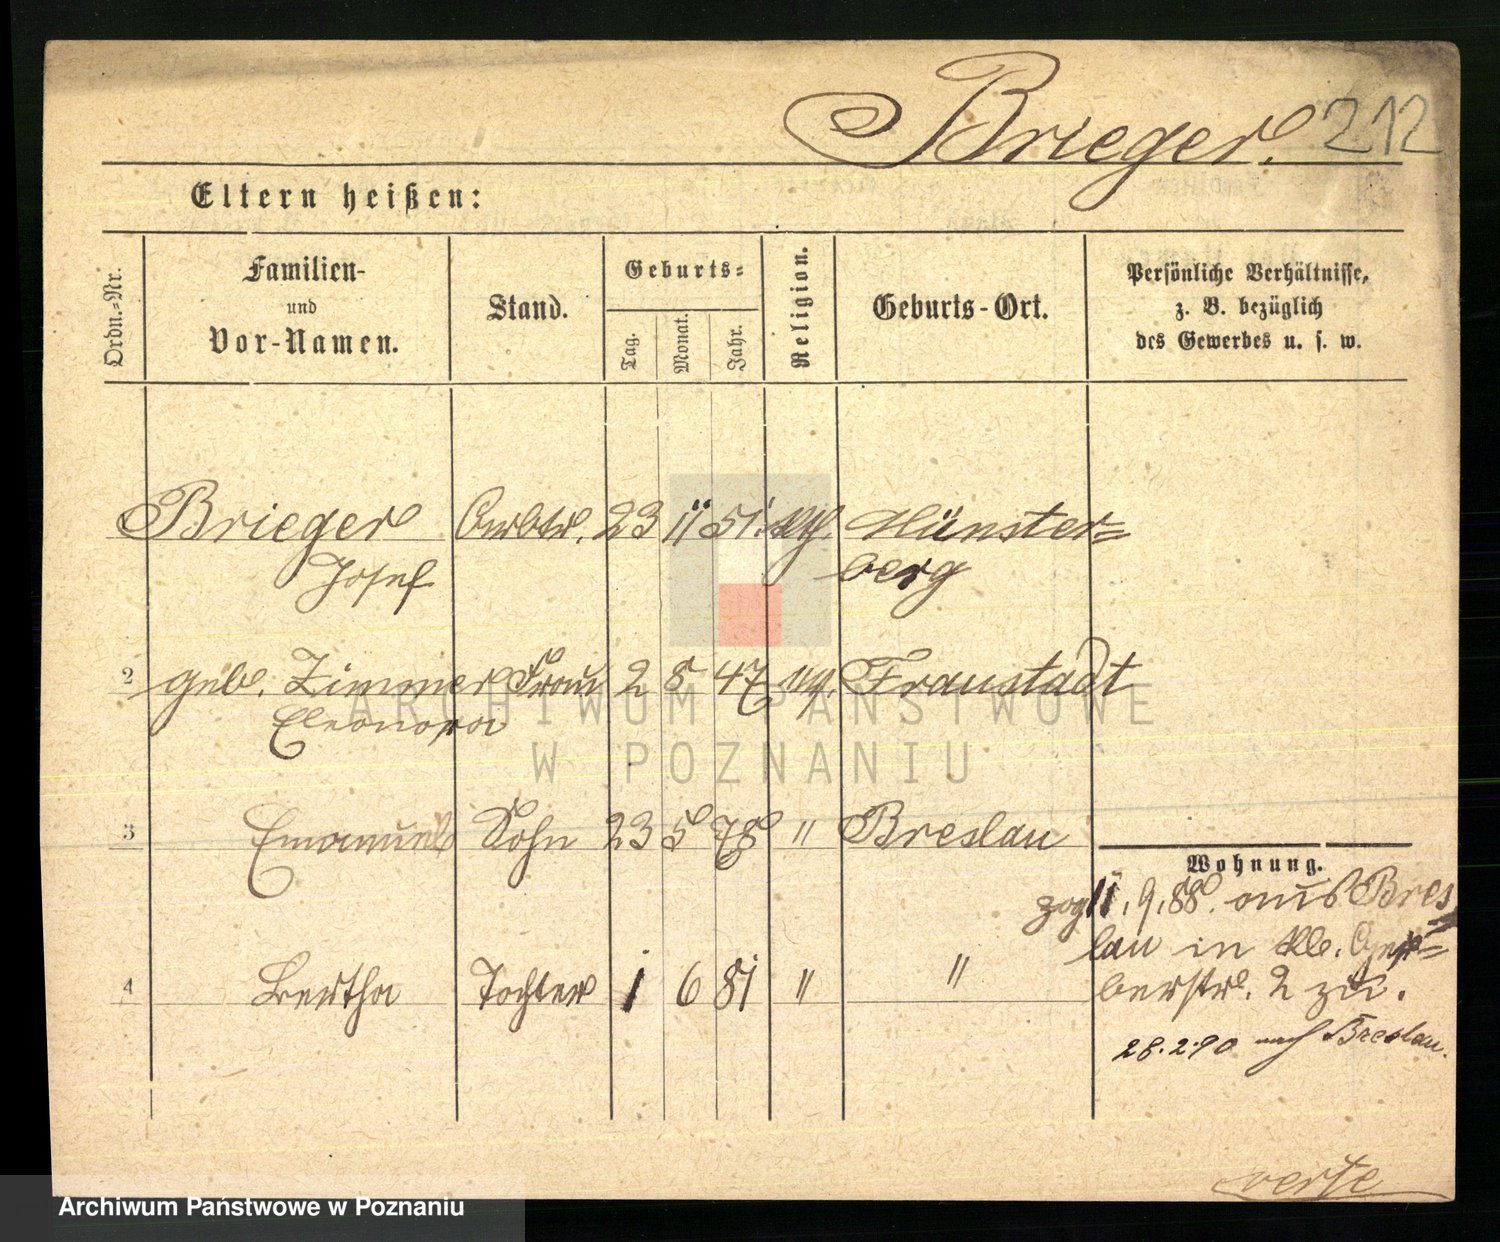 Brieger. 212
Eltern heißen:
Ordn.-Nr.
Familien-
und
Vor-Namen.
Stand.
Geburts-
Tag.
Monat.
Jahr.
Religion.
Geburts-Ort.
Persönliche Verhältnisse,
z. B. bezüglich
des Gewerbes u. s. w.
Brieger 23 11 51. Münster=
Josef berg
2 geb. Zimmer Frau 2 8 47 Fraustadt
Eleonora
3 Emanuel Sohn 23 5 78 " Breslau
4 Bertha Tochter 1 6 81 " "
Wohnung.
zog 11.9.88. aus Bres
lau in Kl. Ger=
berstr. 2 zu.
28.2.90 nach Breslau.
verte
ARCHIWUM PAŃSTWOWE
W POZNANIU
Archiwum Państwowe w Poznaniu